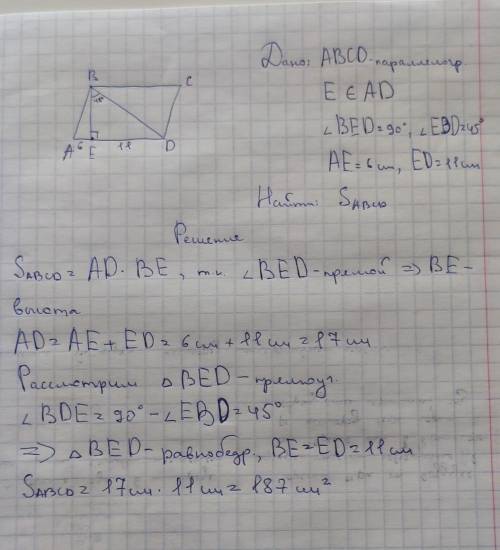 Дано: ABCD-параллелогр.
E ∈ AD
∠BED=90°, ∠EBD=45°
AE=6см, ED=11см
Найти: SABCD
B
C
45°
A
6
E
11
D
Решение
SABCD = AD · BE, т.к. ∠BED-прямой => BE-
высота
AD = AE + ED = 6см + 11см = 17см
Рассмотрим △BED-прямоуг.
∠BDE = 90° - ∠EBD = 45°
=> △BED-равнобедр., BE=ED=11см
SABCD = 17см · 11см = 187 см²